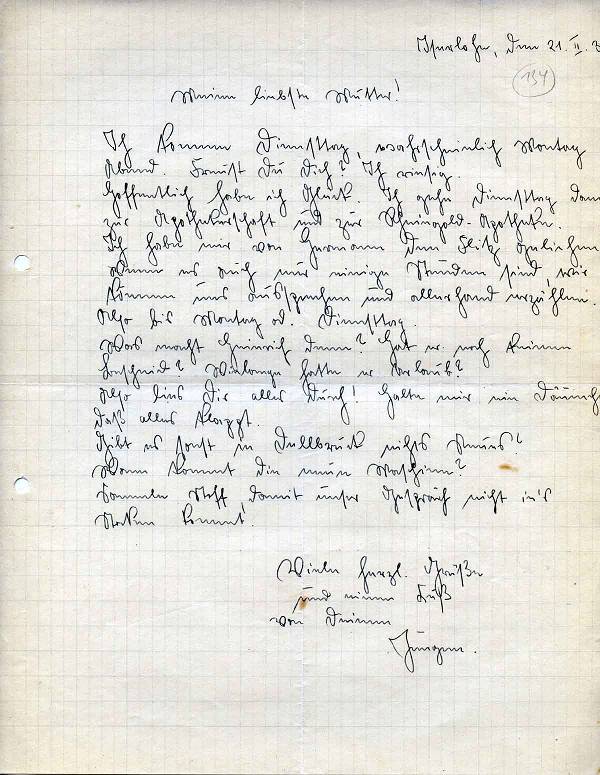 Iserlohn, den 21. II.
134
Meine liebste Mutter!
Ich komme Dienstag, wahrscheinlich Montag
Abend. Freust Du Dich? Ich riesig.
Hoffentlich habe ich Glück. Ich gehe Dienstag dann
zur Apothekerschaft und zur Rheingold-Apotheke.
Ich habe mir von Hermann den geliehen
Wenn es auch nur einige Stunden sind wir
können uns aussprechen und allerhand erzählen.
Also bis Montag od. Dienstag.
Was macht Heinrich denn? Hat er noch keinen
Bescheid? Wielange hatte er Urlaub?
Also lies Dir alles durch! Halte mir ein Däumchen
daß alles klappt.
Gibt es sonst in nichts Neues?
Wann kommt die neue Maschine?
Sammele Stoff, damit unser Gespräch nicht in's
Stocken kommt!
Viele herzl. Grüße
und einen Kuß
von Deinem
Jürgen.